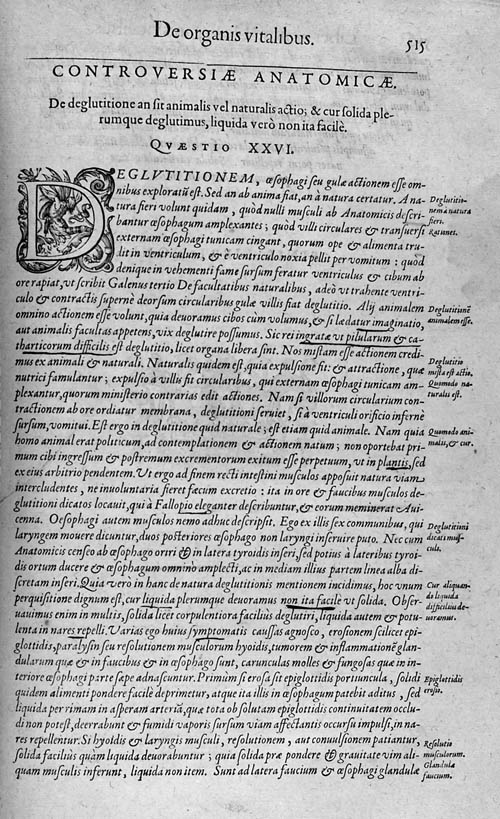 De organis vitalibus. 515
CONTROVERSIÆ ANATOMICÆ.
De deglutitione an sit animalis vel naturalis actio; & cur solida ple-
rumque deglutimus, liquida verò non ita facilè.
QVÆSTIO XXVI.
DEGLVTITIONEM, œsophagi seu gulæ actionem esse om-
nibus exploratũ est. Sed an ab anima fiat, an à natura certatur. A na-
tura fieri volunt quidam, quòd nulli musculi ab Anatomicis descri-
bantur œsophagum amplexantes; quòd villi circulares & transuersi
externam œsophagi tunicam cingant, quorum ope & alimenta tru-
dit in ventriculum, & è ventriculo noxia pellit per vomitum: quòd
denique in vehementi fame sursum feratur ventriculus & cibum ab
ore rapiat, vt scribit Galenus tertio De facultatibus naturalibus, adeò vt trahente ventri-
culo & contractis supernè deorsum circularibus gulæ villis fiat deglutitio. Alij animalem
omnino actionem esse volunt, quia deuoramus cibos cùm volumus, & si lædatur imaginatio,
aut animalis facultas appetens, vix deglutire possumus. Sic rei ingratæ vt pilularum & ca-
tharticorum difficilis est deglutitio, licet organa libera sint. Nos mistam esse actionem credi-
mus ex animali & naturali. Naturalis quidem est, quia expulsione fit: & attractione, quæ
nutrici famulantur; expulsio à villis fit circularibus, qui externam œsophagi tunicam am-
plexantur, quorum ministerio contrarias edit actiones. Nam si villorum circularium con-
tractionem ab ore ordiatur membrana, deglutitioni seruiet, si à ventriculi orificio infernè
sursum, vomitui. Est ergo in deglutitione quid naturale; est etiam quid animale. Nam quia
homo animal erat politicum, ad contemplationem & actionem natum; non oportebat pri-
mum cibi ingressum & postremum excrementorum exitum esse perpetuum, vt in plantis, sed
ex eius arbitrio pendentem. Vt ergo ad finem recti intestini musculos apposuit natura viam
intercludentes, ne inuoluntaria fieret fæcum excretio: ita in ore & faucibus musculos de-
glutitioni dicatos locauit, qui à Fallopio eleganter describuntur, & eorum meminerat Aui-
cenna. Oesophagi autem musculos nemo adhuc descripsit. Ego ex illis sex communibus, qui
laryngem mouere dicuntur, duos posteriores œsophago non laryngi inseruire puto. Nec cum
Anatomicis censeo ab œsophago oriri & in latera tyroidis inseri, sed potiùs à lateribus tyroi-
dis ortum ducere & œsophagum omnino amplecti, ac in mediam illius partem linea alba di-
scretam inseri. Quia verò in hanc de natura deglutitionis mentionem incidimus, hoc vnum
perquisitione dignum est, cur liquida plerumque deuoramus non ita facilè vt solida. Obser-
uauimus enim in multis, solida licet corpulentiora faciliùs deglutiri, liquida autem & potu-
lenta in nares repelli. Varias ego huius symptomatis caussas agnosco, erosionem scilicet epi-
glottidis, paralysin seu resolutionem musculorum hyoidis, tumorem & inflammationẽ glan-
dularum quæ & in faucibus & in œsophago sunt, carunculas molles & fungosas quæ in in-
teriore œsophagi parte sæpe adnascuntur. Primùm si erosa sit epiglottidis portiuncula, solidi
quidem alimenti pondere facilè deprimetur, atque ita illis in œsophagum patebit aditus, sed
liquida per rimam in asperam arteriã, quæ tota ob solutam epiglottidis continuitatem occlu-
di non potest, deerrabunt & fumidi vaporis sursum viam affectantis occursu impulsi, in na-
res repellentur. Si hyoidis & laryngis musculi, resolutionem, aut conuulsionem patiantur,
solida faciliùs quàm liquida deuorabuntur; quia solida præ pondere & grauitate vim ali-
quam musculis inferunt, liquida non item. Sunt ad latera faucium & œsophagi glandulæ
Deglutitio-
nem à natura
fieri.
Rationes.
Deglutitionẽ
animalem esse.
Deglutitio
mista est actio.
Quomodo na-
turalis est.
Quomodo ani-
malis, & cur.
Deglutitioni
dicati mus-
culi.
Cur aliquan-
do liquida
difficiliùs de-
uoramus.
Epiglottidis
erosio.
Resolutio
musculorum.
Glandulæ
faucium.